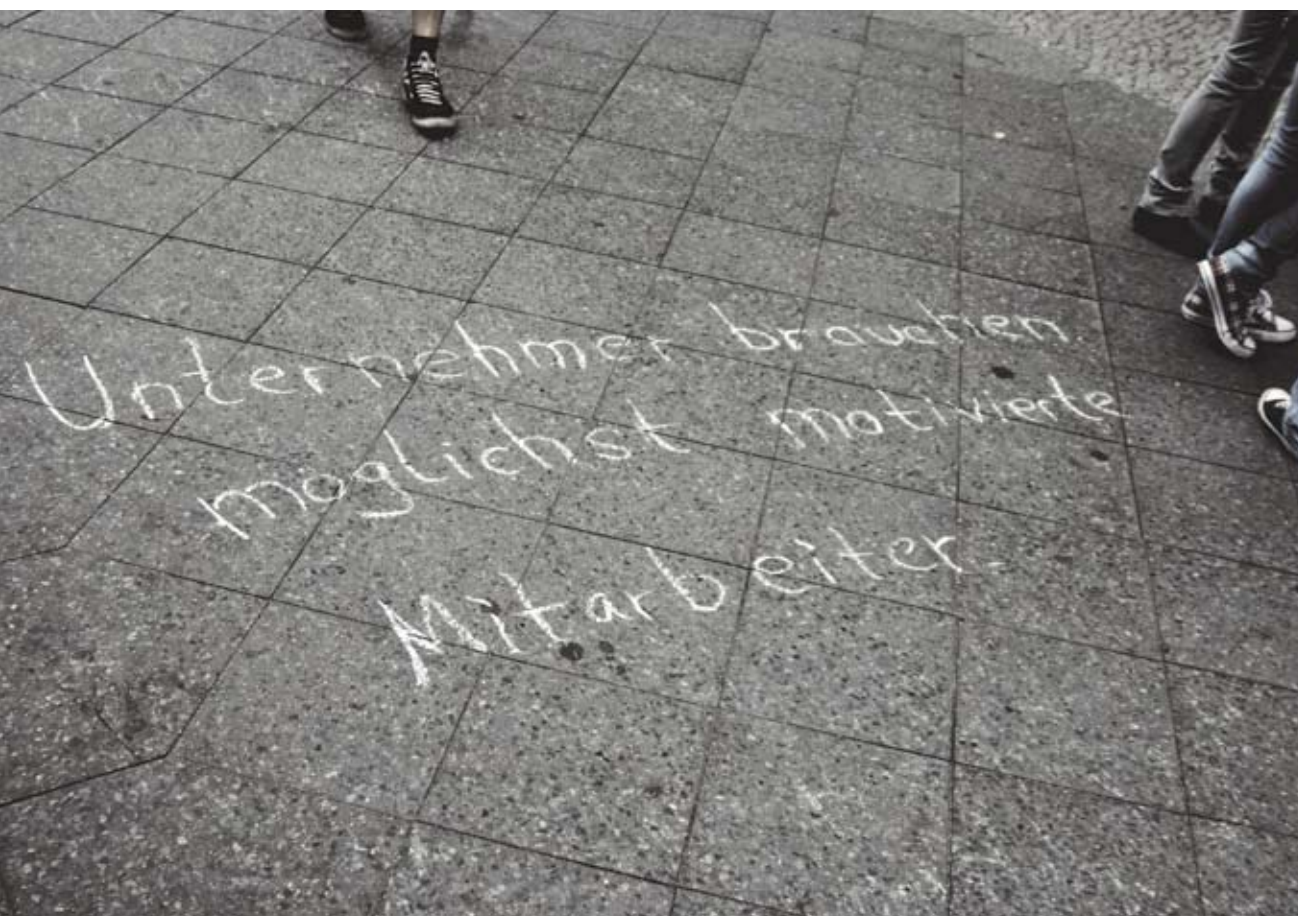 Unternehmer brauchen
moglichst motivierte
Mitarbeiter.